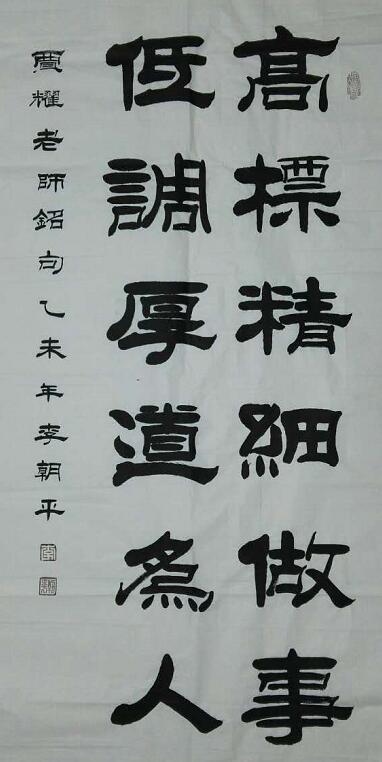 高標精細做事
低調厚道為人
賈耀老師銘句乙未年李朝平